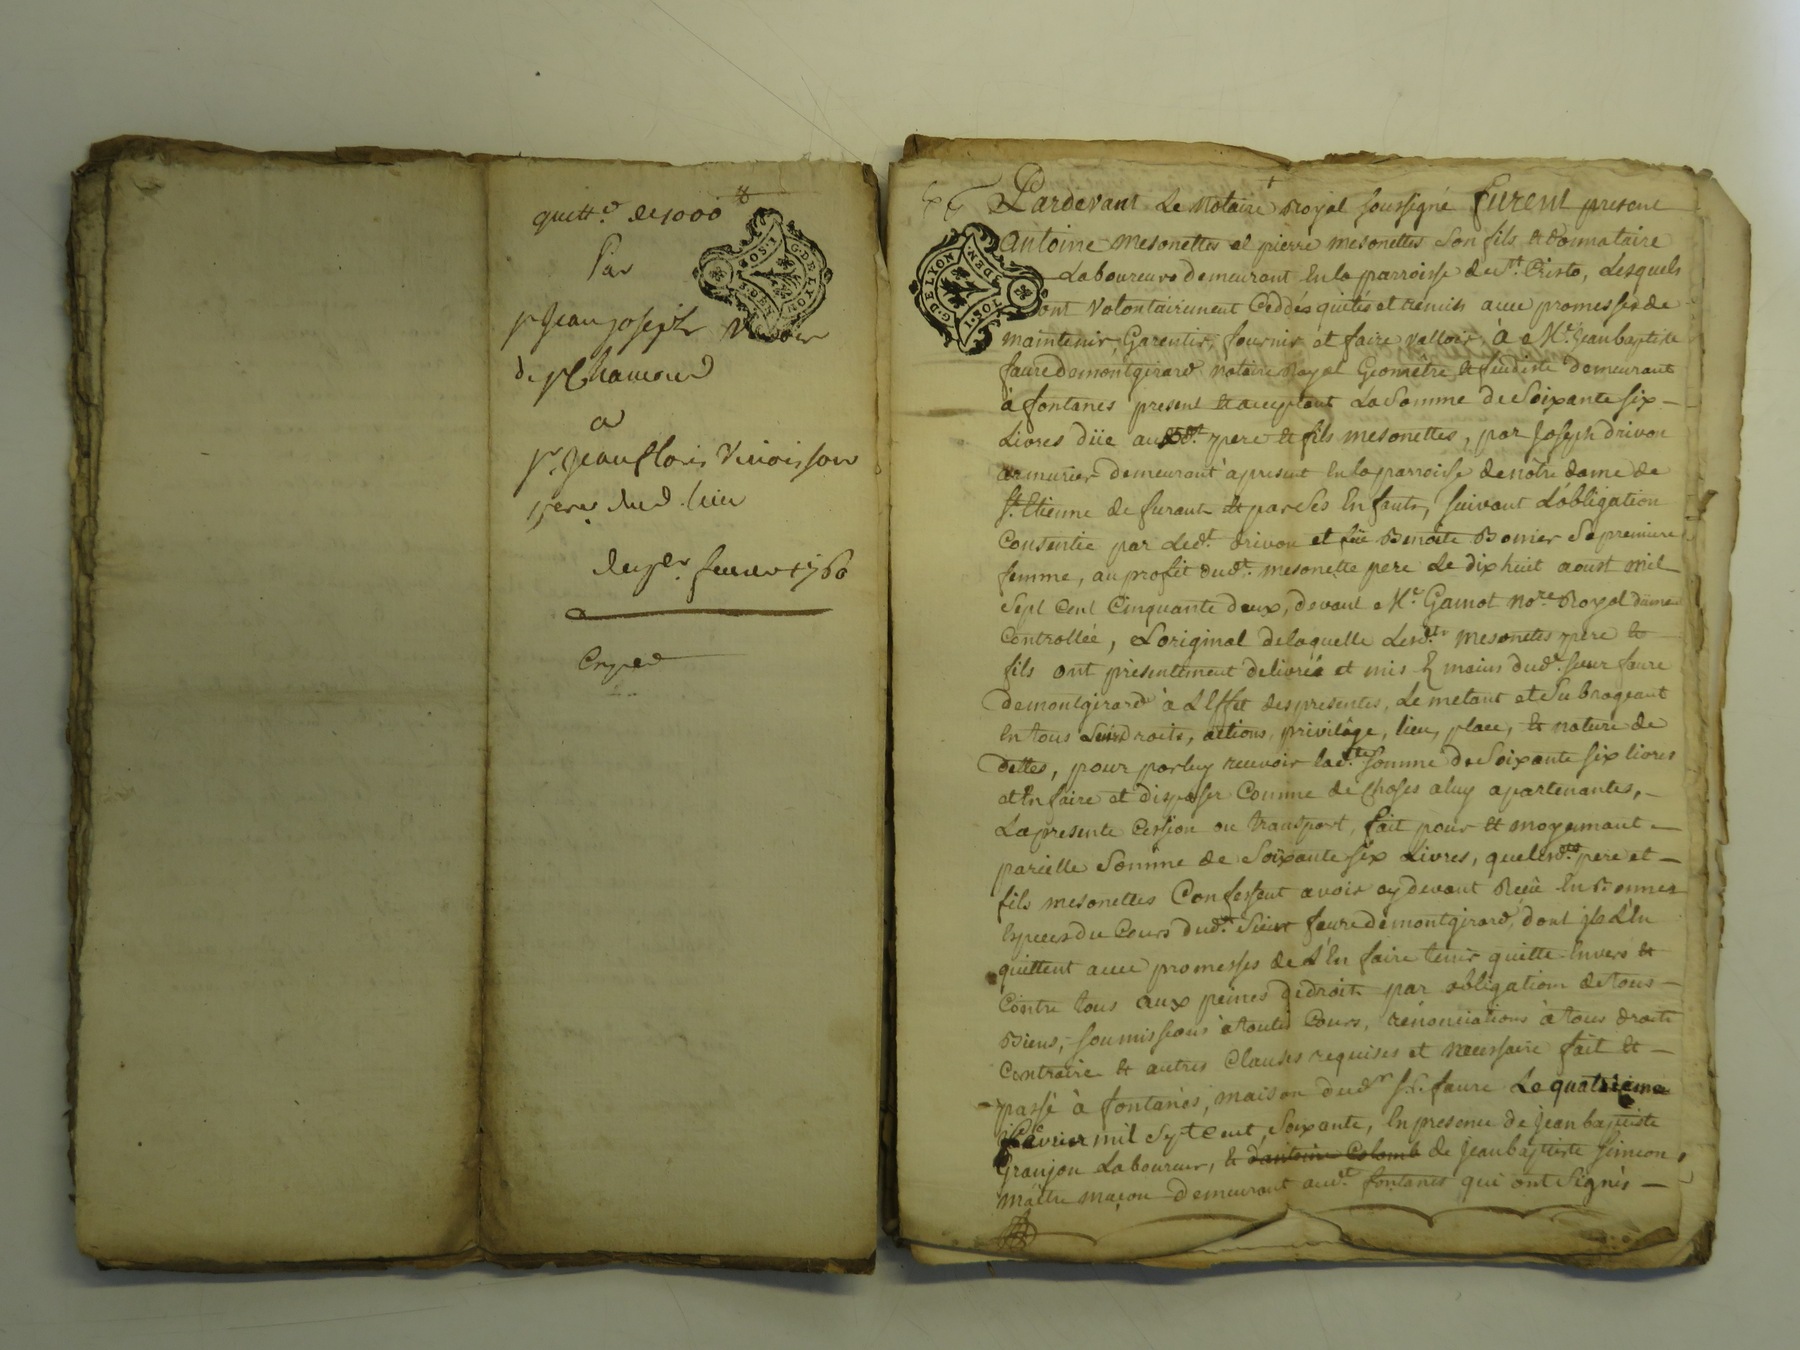 quitt.e de 1000 ₶
Par
sr Jean joseph
de st Chamond
a
sr Jean floris Vinoisson
pere dud. lieu
du per fevrier 1760
Expede
G. DE LYON
2. SOLS
Pardevant Le Notaire Royal soussigné furent present
Antoine mesonettes et pierre mesonettes son fils & donnataire
Laboureurs demeurant En la parroisse de st. Cristo, Lesquels
ont Volontairement Ceddés quités et remis avec promesses de
maintenir, Garentir, fournir et faire Valloir, à Me. Jean baptiste
faure demontgirard notaire Royal Geometre & feudiste demeurant
à fontanes present & acceptant La Somme de Soixante six
Livres düe ausd. pere & fils mesonettes, par Joseph drivon
armurier demeurant apresent En la parroisse de nôtre dame de
st. Etienne de furant & par Ses Enfants, suivant L'obligation
Consentie par Led. drivon et feüe Benoite Bonier Sa premiere
femme, au profit dud. mesonette pere Le dix huit aoust mil
Sept Cent Cinquante deux, devant Me Gamot Nore Royal düment
Controllée, L'original de laquelle Lesd. mesonetes pere &
fils ont presentement delivrés et mis Es mains dud. sieur faure
demontgirard à L'Effet des presentes, Le metant et Subrogeant
En tous Leurs droits, actions, privilége, lieu, place, & nature de
dettes, pour par luy recevoir lad.te somme de Soixante six livres
et En faire et disposer Comme de choses a luy apartenantes,
La presente Cession ou transport, fait pour & moyennant
pareille Somme de Soixante six Livres, que lesd.ts pere et
fils mesonettes Confessent avoir cy devant Reçüe En Bonnes
Especes du Cours dud. Sieur faure demontgirard, dont ils L'En
quittent avec promesses de L'En faire tenir quitte Envers &
Contre tous aux peines de droit par obligation de tous
Biens, soumissions à toutes Cours, rénonciations à tous droits
Contraire & autres Clauses requises et necessaire fait &
passé à fontanés, maison dud. sr. faure Le quatrieme
fevrier mil Sept Cent Soixante, En presence de Jean baptiste
Granjon Laboureur, & d'antoine Colomb de Jean baptiste Simeon
maître maçon demeurant aud. fontanes qui ont Signés